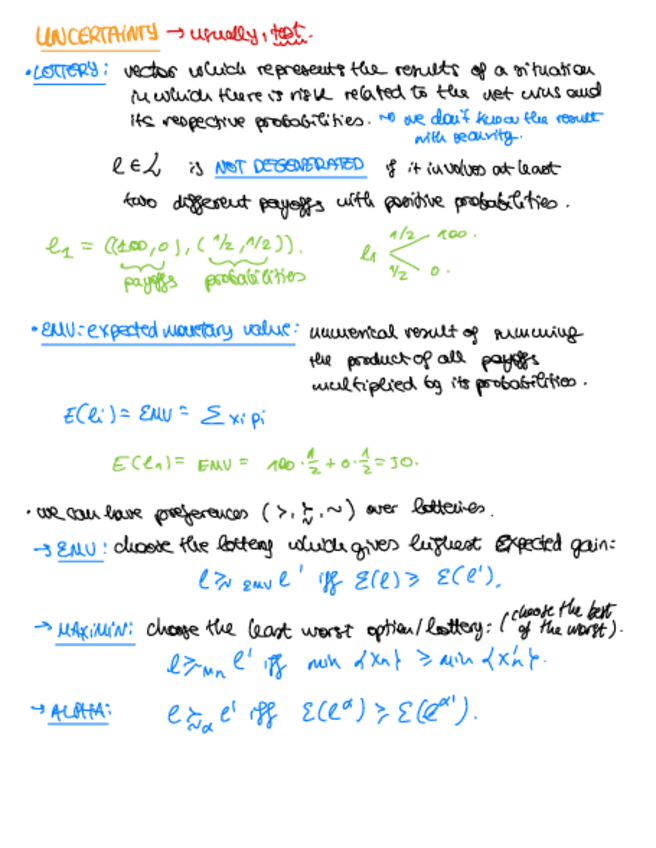 UNCERTAINTY → usually, test.
• LOTTERY: vector which represents the results of a situation
in which there is risk related to the net wins and
its respective probabilities. ~> we don't know the result
with security.
l ∈ L is NOT DEGENERATED if it involves at least
two different payoffs with positive probabilities.
l1 = ((100,0), (1/2, 1/2)).
payoffs probabilities
l1 1/2 100.
1/2 0.
• EMV: expected monetary value: numerical result of summing
the product of all payoffs
multiplied by its probabilities.
E(li) = EMV = Σ xi pi
E(l1) = EMV = 100 · 1/2 + 0 · 1/2 = 50.
• we can have preferences (>, ≿, ~) over lotteries.
→ EMV: choose the lottery which gives highest expected gain:
l ≿ EMV l' iff E(l) ≥ E(l').
→ MAXIMIN: choose the least worst option/lottery: (choose the best
of the worst).
l ≿ Mn l' iff min {xn} ≥ min {x'n}.
→ ALPHA: l ≿α l' iff E(l^α) ≥ E(l^α').